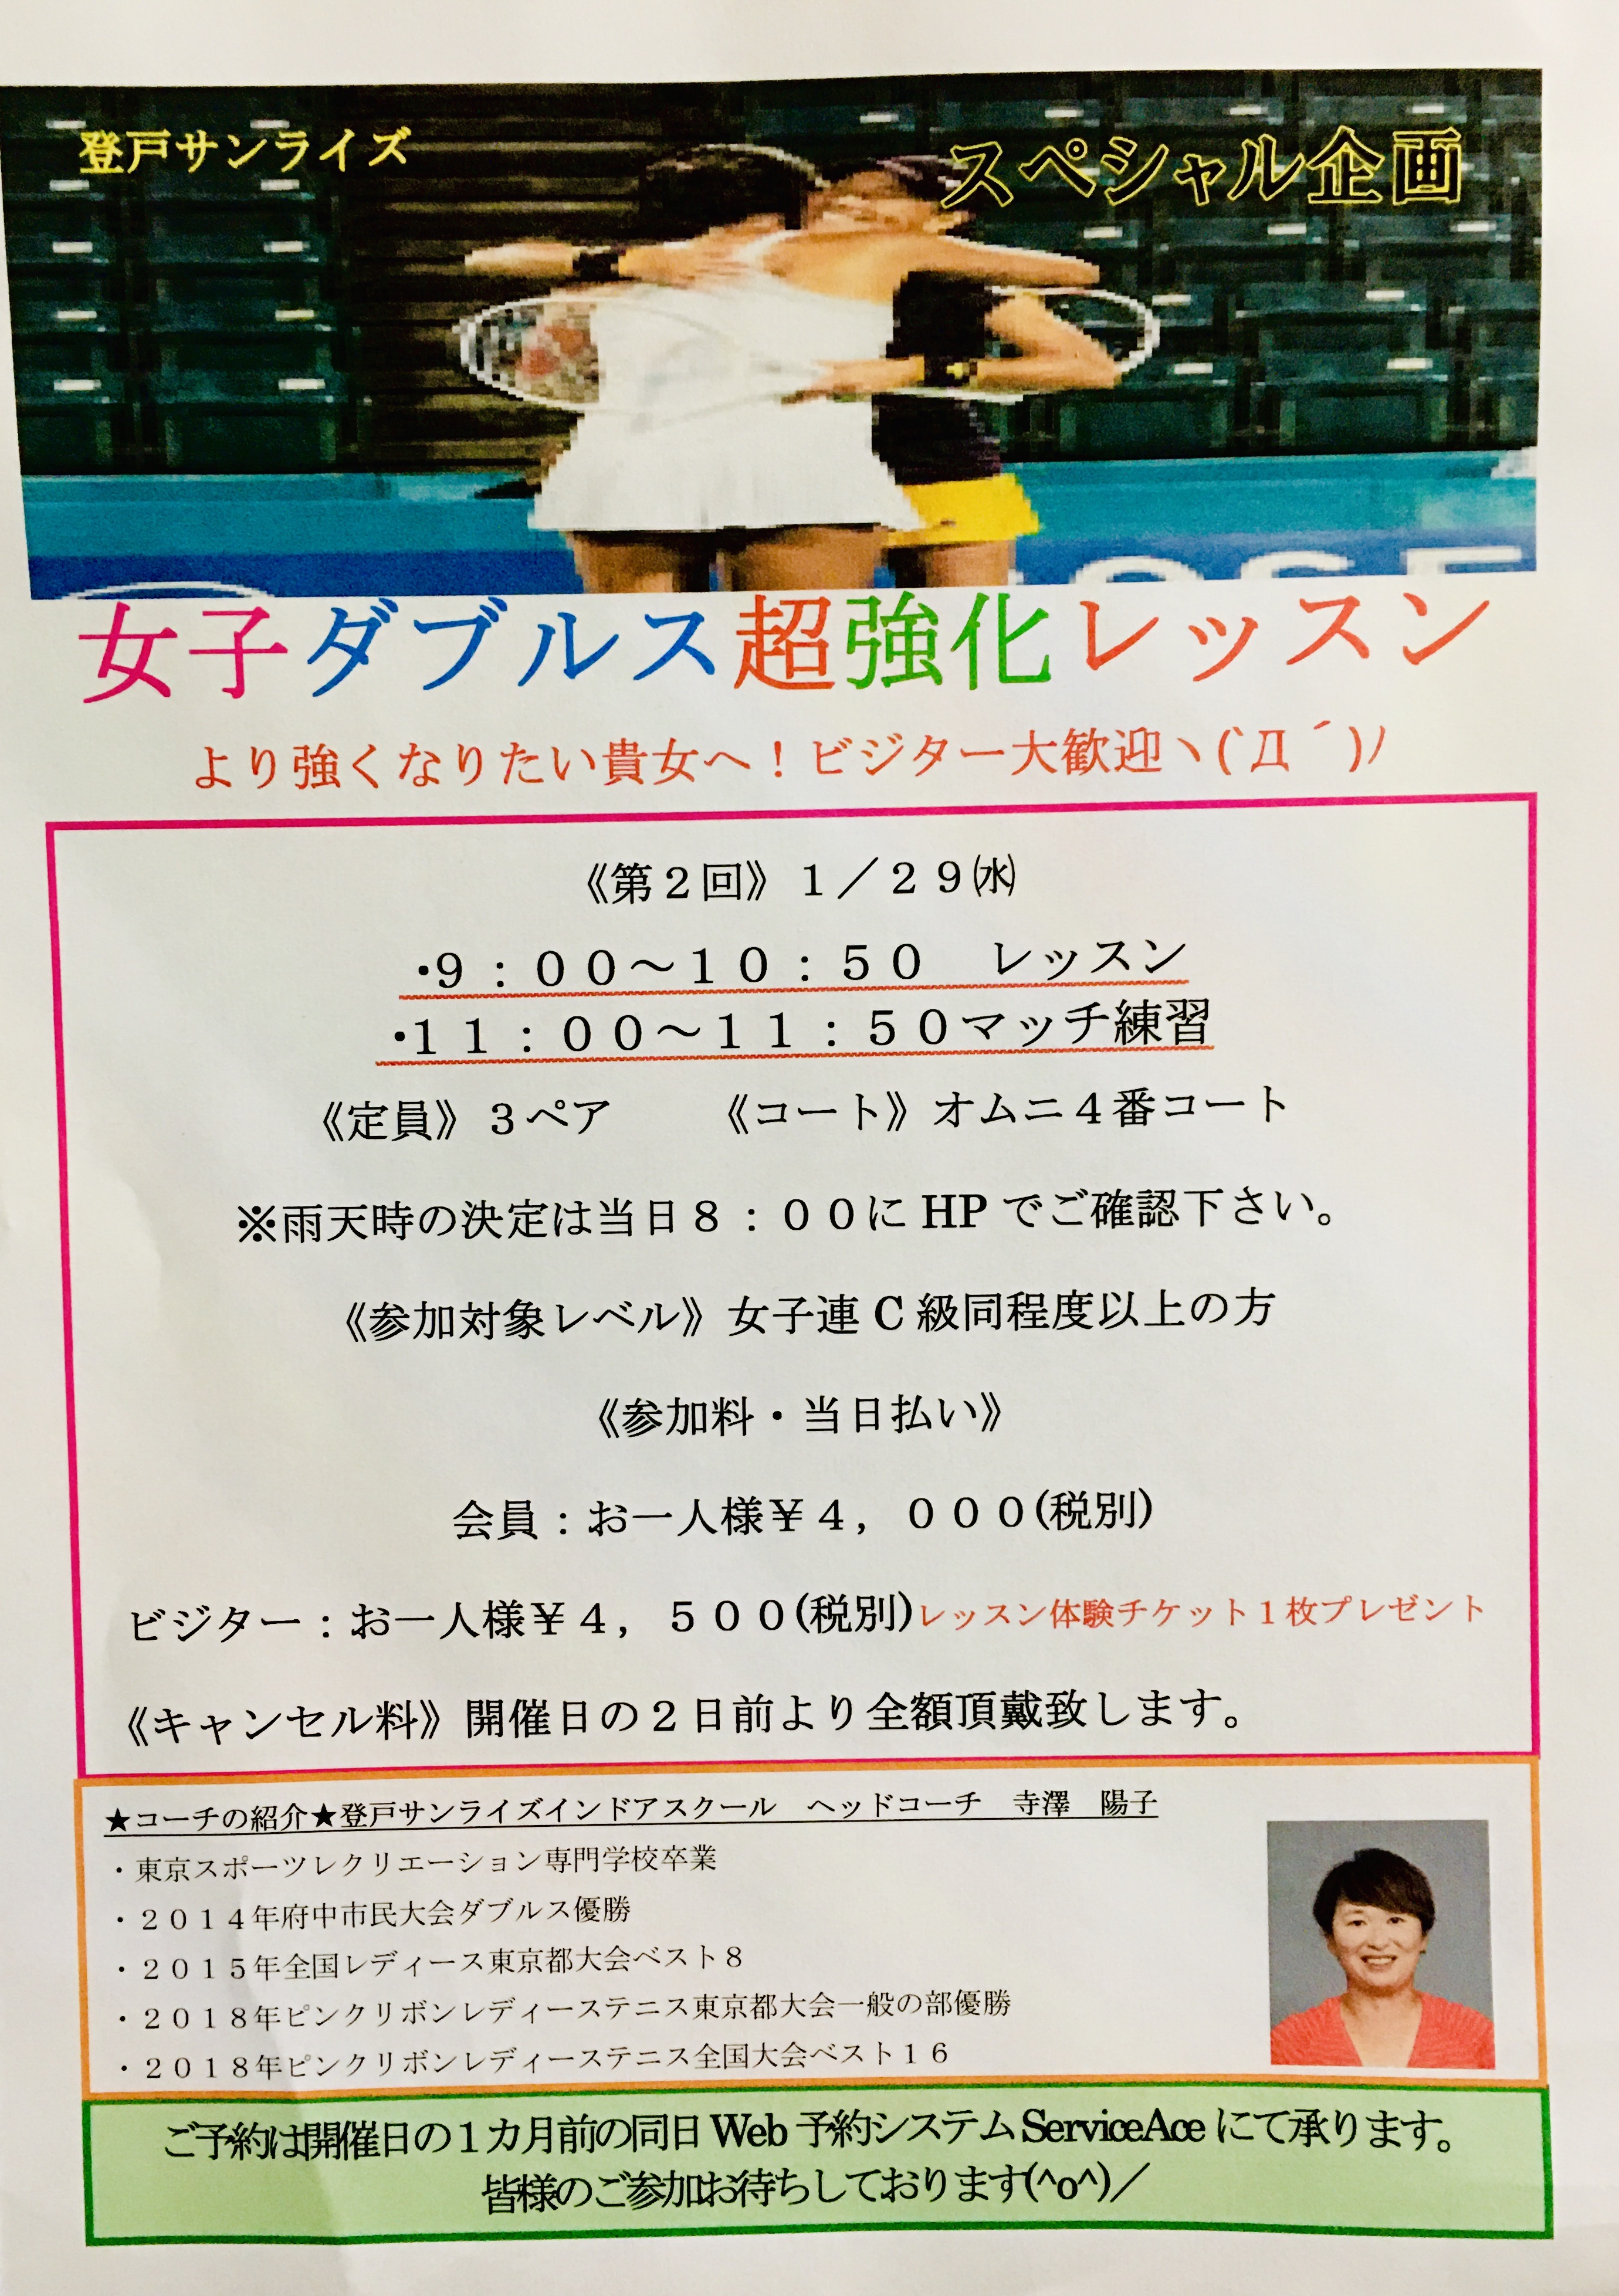 登戸サンライズ
スペシャル企画
女子ダブルス超強化レッスン
より強くなりたい貴女へ！ビジター大歓迎ヽ(`Д´)ﾉ
《第２回》１／２９㈬
・９：００～１０：５０　レッスン
・１１：００～１１：５０マッチ練習
《定員》３ペア　　《コート》オムニ４番コート
※雨天時の決定は当日８：００に HP でご確認下さい。
《参加対象レベル》女子連 C 級同程度以上の方
《参加料・当日払い》
会員：お一人様￥４，０００(税別)
ビジター：お一人様￥４，５００(税別)レッスン体験チケット１枚プレゼント
《キャンセル料》開催日の２日前より全額頂戴致します。
★コーチの紹介★登戸サンライズインドアスクール　ヘッドコーチ　寺澤　陽子
・東京スポーツレクリエーション専門学校卒業
・２０１４年府中市民大会ダブルス優勝
・２０１５年全国レディース東京都大会ベスト８
・２０１８年ピンクリボンレディーステニス東京都大会一般の部優勝
・２０１８年ピンクリボンレディーステニス全国大会ベスト１６
ご予約は開催日の１カ月前の同日 Web 予約システム ServiceAce にて承ります。
皆様のご参加お待ちしております(^o^)／